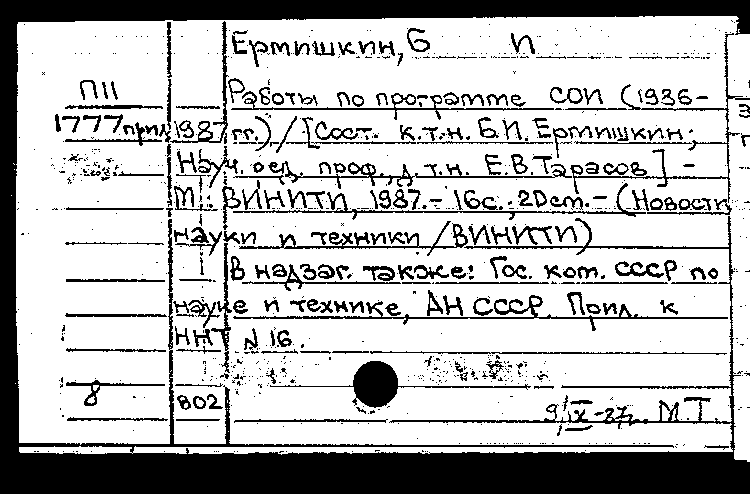 Ермишкин, Б И
П11 Работы по программе СОИ (1986-
1777 прил 1987 гг.) / [Сост. к.т.н. Б.И. Ермишкин;
Науч. ред. проф., д.т.н. Е.В. Тарасов] -
М.: ВИНИТИ, 1987. - 16с.; 20см. - (Новости
науки и техники / ВИНИТИ)
В надзаг. также: Гос. ком. СССР по
науке и технике, АН СССР. Прил. к
ННТ N 16.
8 802
9/IX-87г. М.Т.